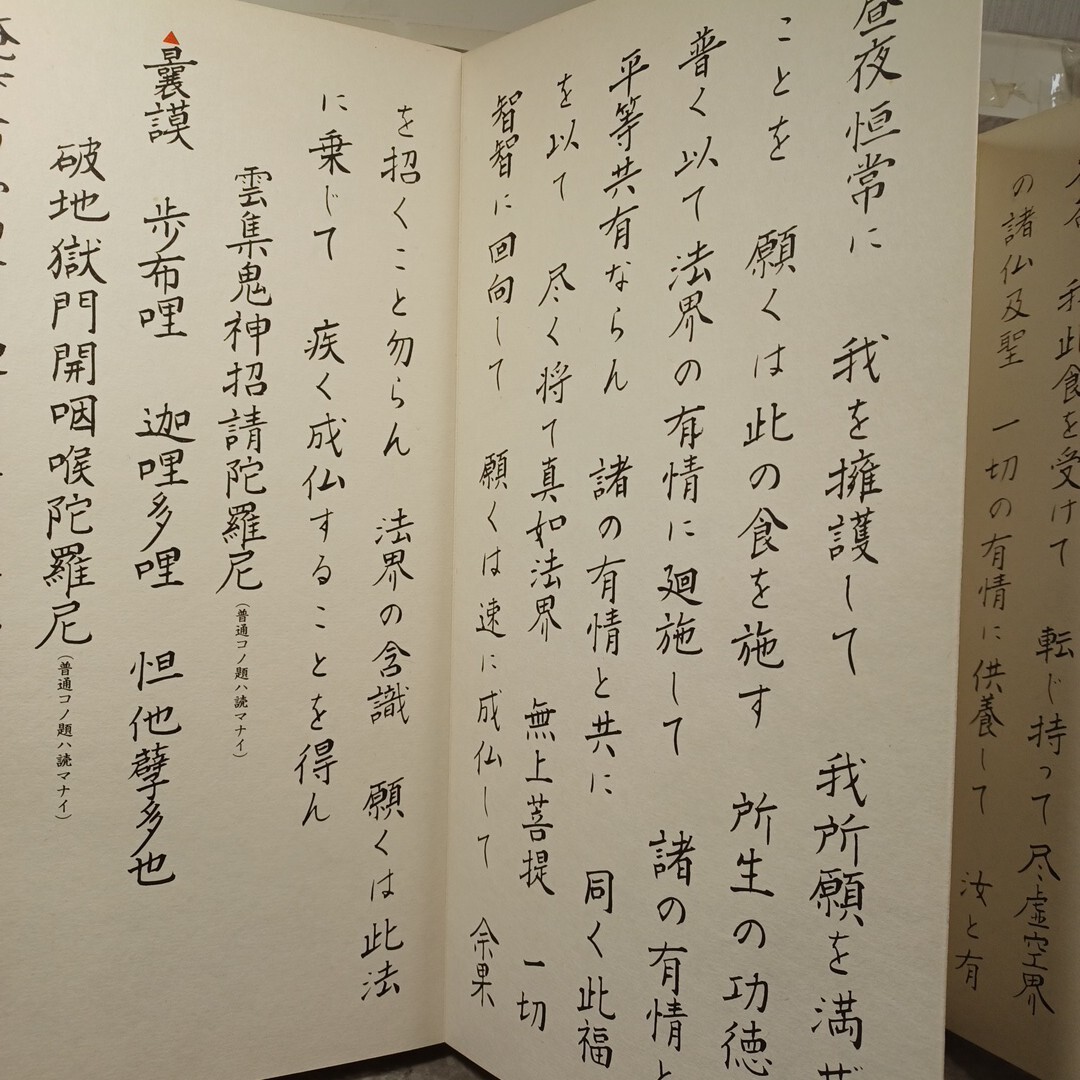 我此食を受けて 転じ持って 尽虚空界
の諸仏及聖 一切の有情に供養して 汝と有
昼夜恒常に 我を擁護して 我所願を満ぜ
ことを 願くは此の食を施す 所生の功徳
普く以て法界の有情に廻施して 諸の有情と
平等共有ならん 諸の有情と共に 同く此福
を以て 尽く将て真如法界 無上菩提 一切
智智に回向して 願くは速に成仏して 余果
を招くこと勿らん 法界の含識 願くは此法
に乗じて 疾く成仏することを得ん
雲集鬼神招請陀羅尼（普通コノ題ハ読マナイ）
曩謨 歩布哩 迦哩多哩 怛他孽多也
破地獄門開咽喉陀羅尼（普通コノ題ハ読マナイ）